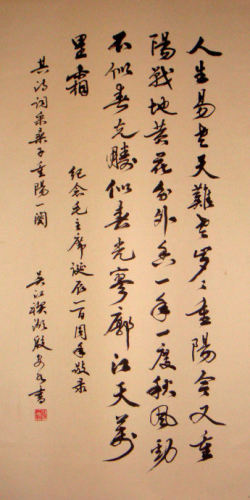 人生易老天難老岁々重陽今又重
陽戰地黄花分外香一年一度秋風勁
不似春光勝似春光寥廓江天萬
里霜
紀念毛主席誕辰一百周年敬录
其詩詞采桑子重陽一闋
吴江 湖殷安 書